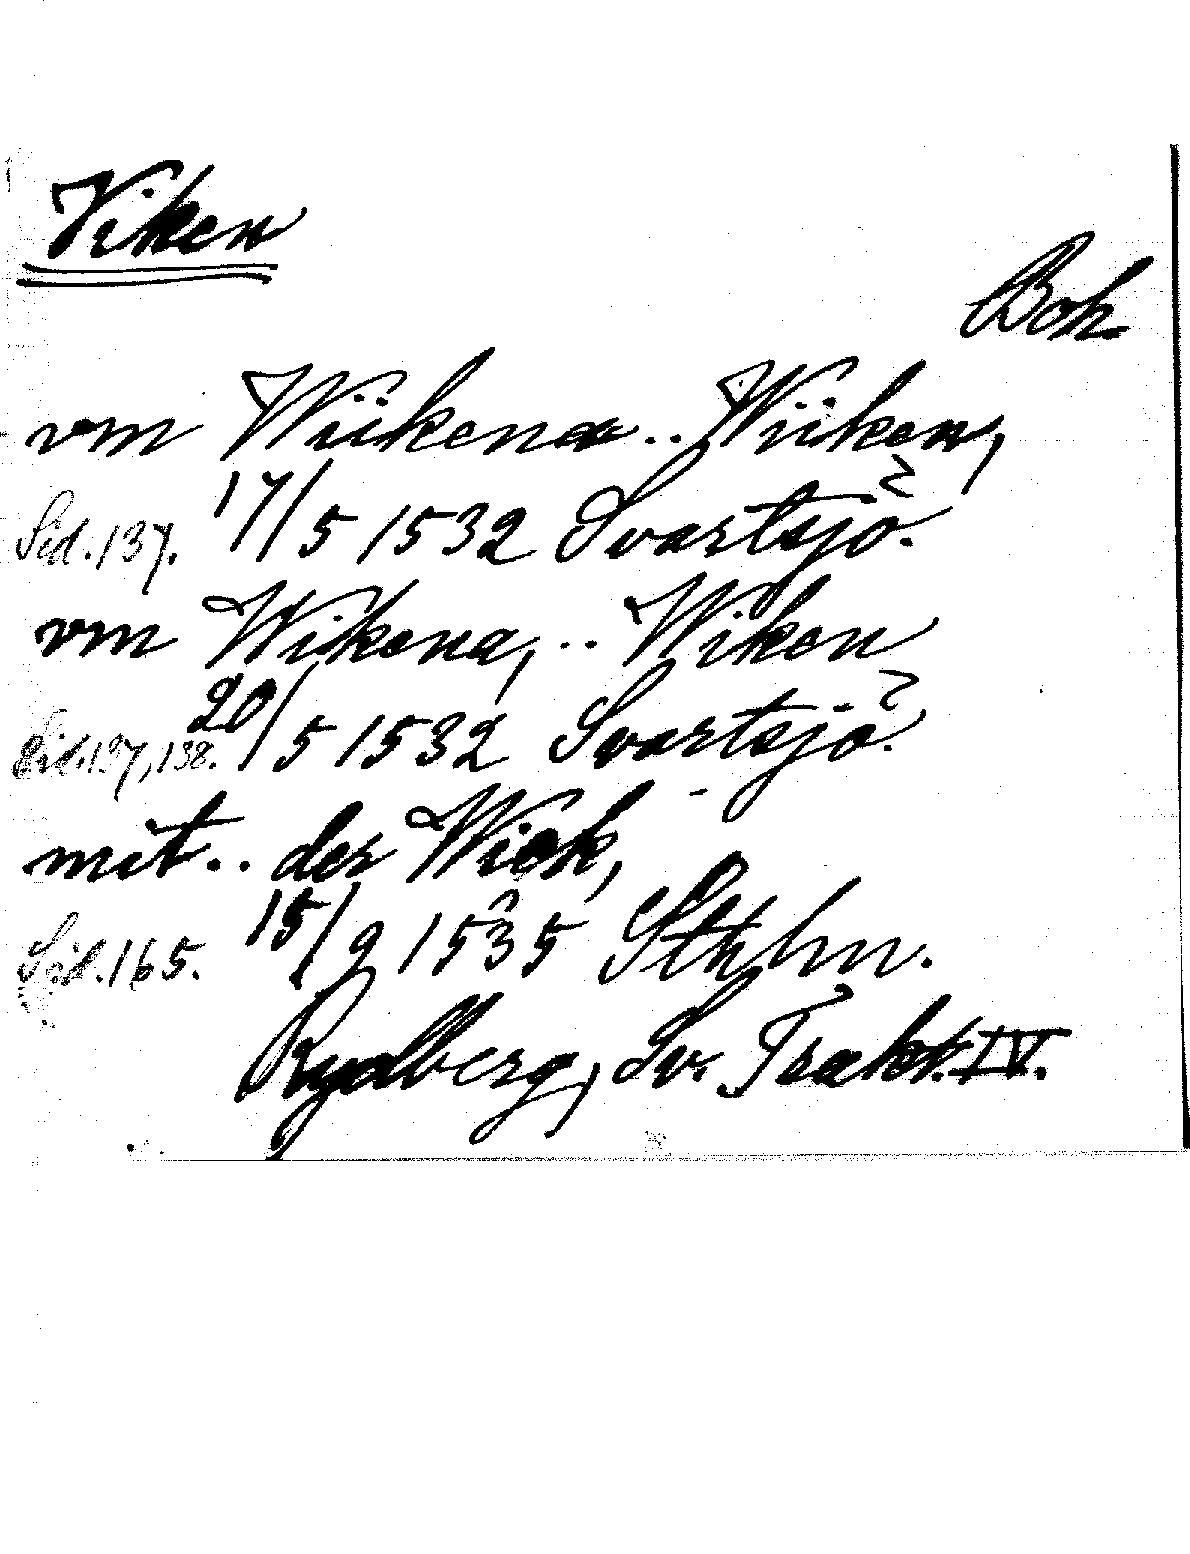 Viken
Boh.
vm Wiikena .. Wiiken,
Sid. 137. 17/5 1532 Svartsjö.
vm Wikena, .. Wiken
Sid. 137, 138. 20/5 1532 Svartsjö.
mit .. der Wick,
Sid. 165. 15/9 1535 Sthlm.
Rydberg, Sv. Trakt. IV.